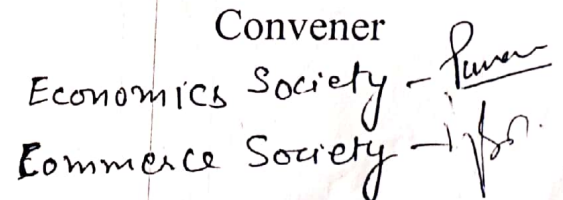 Convener
Economics Society -
Commerce Society -